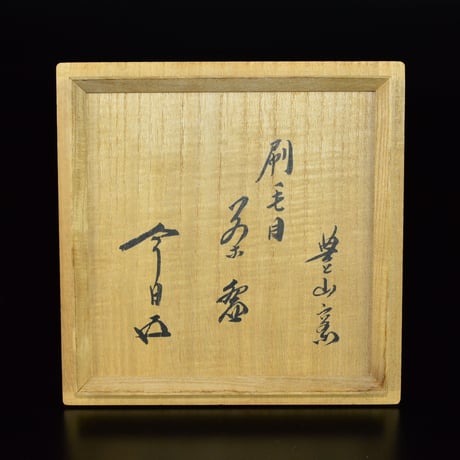 豊山窯
刷毛目
茶碗
今日